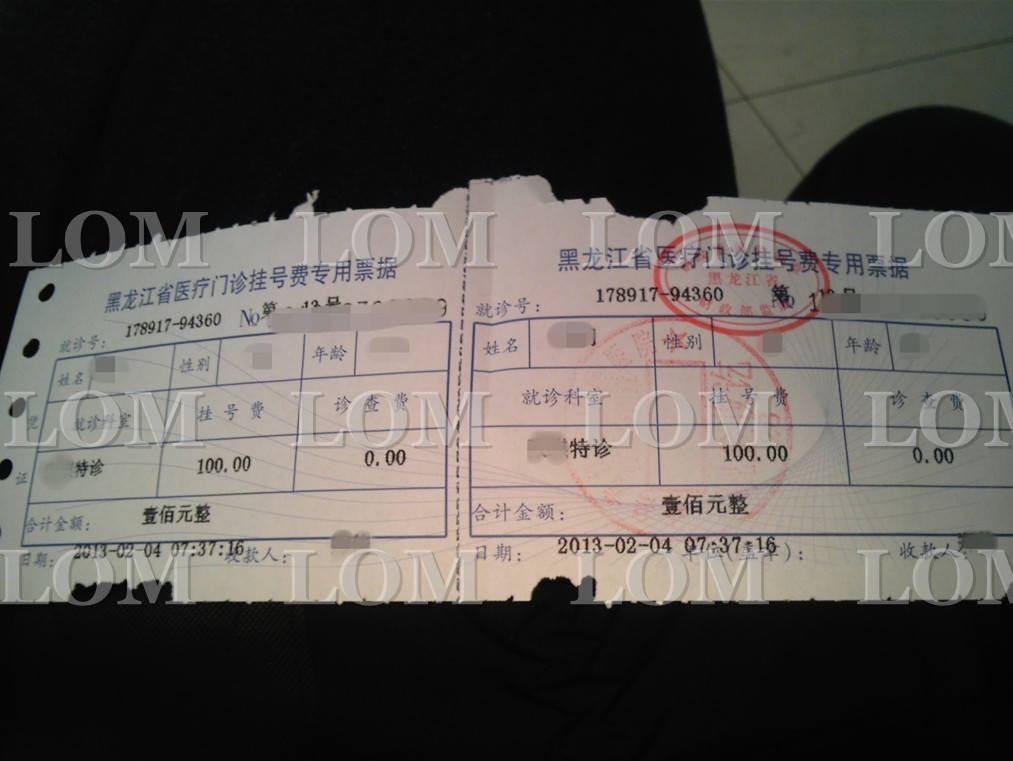 黑龙江省医疗门诊挂号费专用票据
就诊号: 178917-94360 No 第 号
姓名 性别 年龄
就诊科室 挂号费 诊查费
特诊 100.00 0.00
合计金额: 壹佰元整
日期: 2013-02-04 07:37:16 收款人:
证
黑龙江省医疗门诊挂号费专用票据
就诊号: 178917-94360 第 号
姓名 性别 年龄
就诊科室 挂号费 诊查费
特诊 100.00 0.00
合计金额: 壹佰元整
日期: 2013-02-04 07:37:16 单位(盖章): 收款人:
黑龙江省
LOM LOM LOM LOM
LOM LOM LOM LOM
LOM LOM LOM LOM